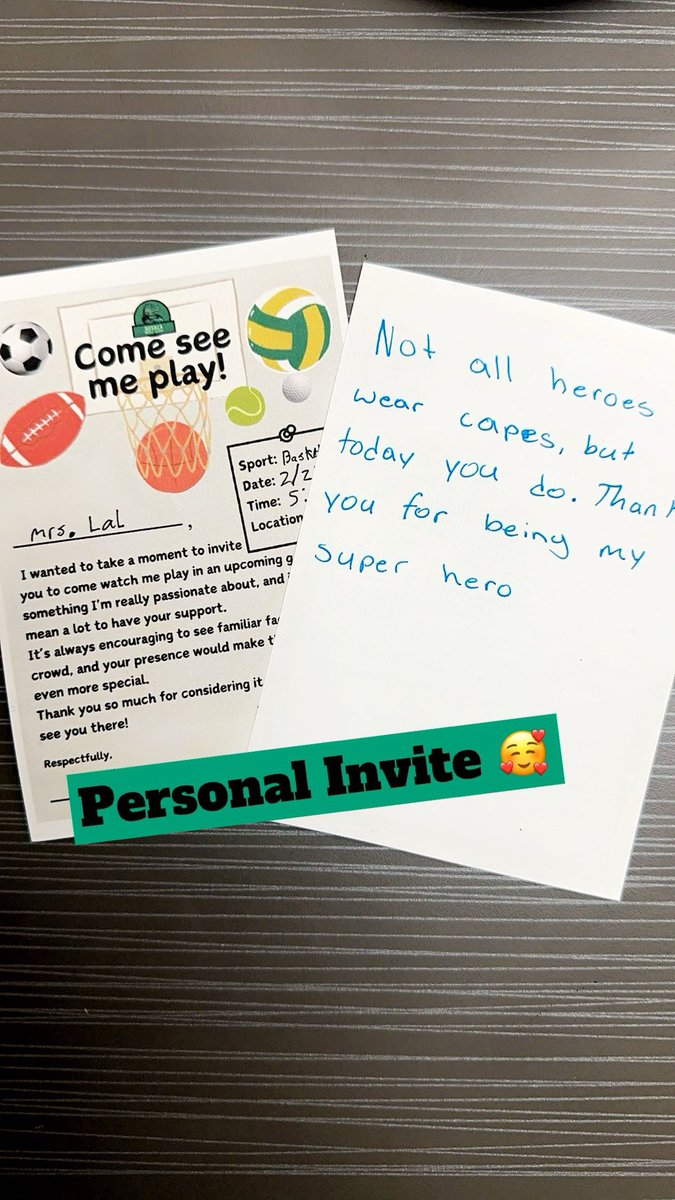 Come see
me play!
Sport: Basket
Date: 2/2
Time: 5:
Location
Mrs. Lal,
I wanted to take a moment to invite
you to come watch me play in an upcoming g
something I'm really passionate about, and i
mean a lot to have your support.
It's always encouraging to see familiar fac
crowd, and your presence would make th
even more special.
Thank you so much for considering it
see you there!
Respectfully,
Not all heroes
wear capes, but
today you do. Thank
you for being my
super hero
Personal Invite 🥰